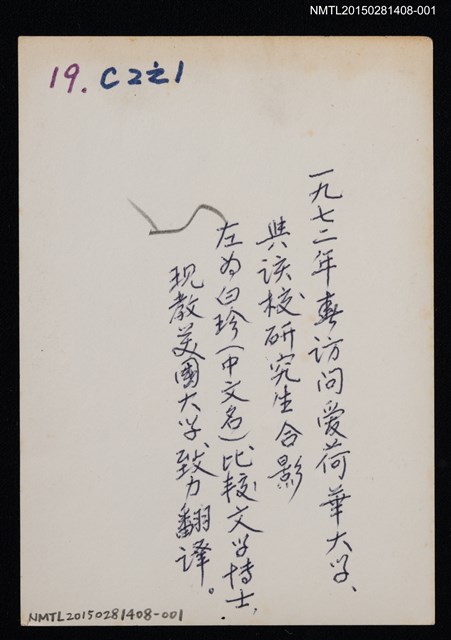 NMTL20150281408-001
19. C2之1
一九七二年春访问爱荷華大学、
与该校研究生合影
左为白珍(中文名)比較文学博士,
现教美國大学,致力翻译。
NMTL20150281408-001